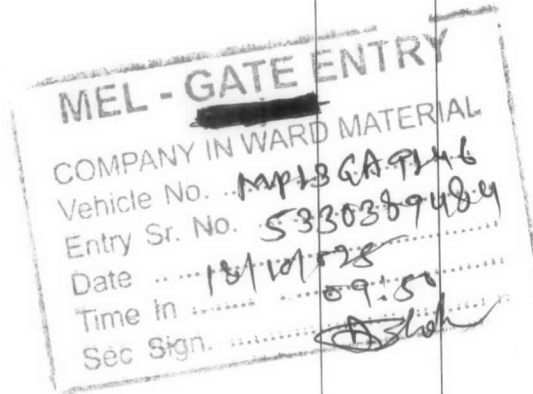 MEL - GATE ENTRY
COMPANY IN WARD MATERIAL
Vehicle No. MP13GA9146
Entry Sr. No. 5330389484
Date 18/10/025
Time In 09:50
Sec Sign. Ashok